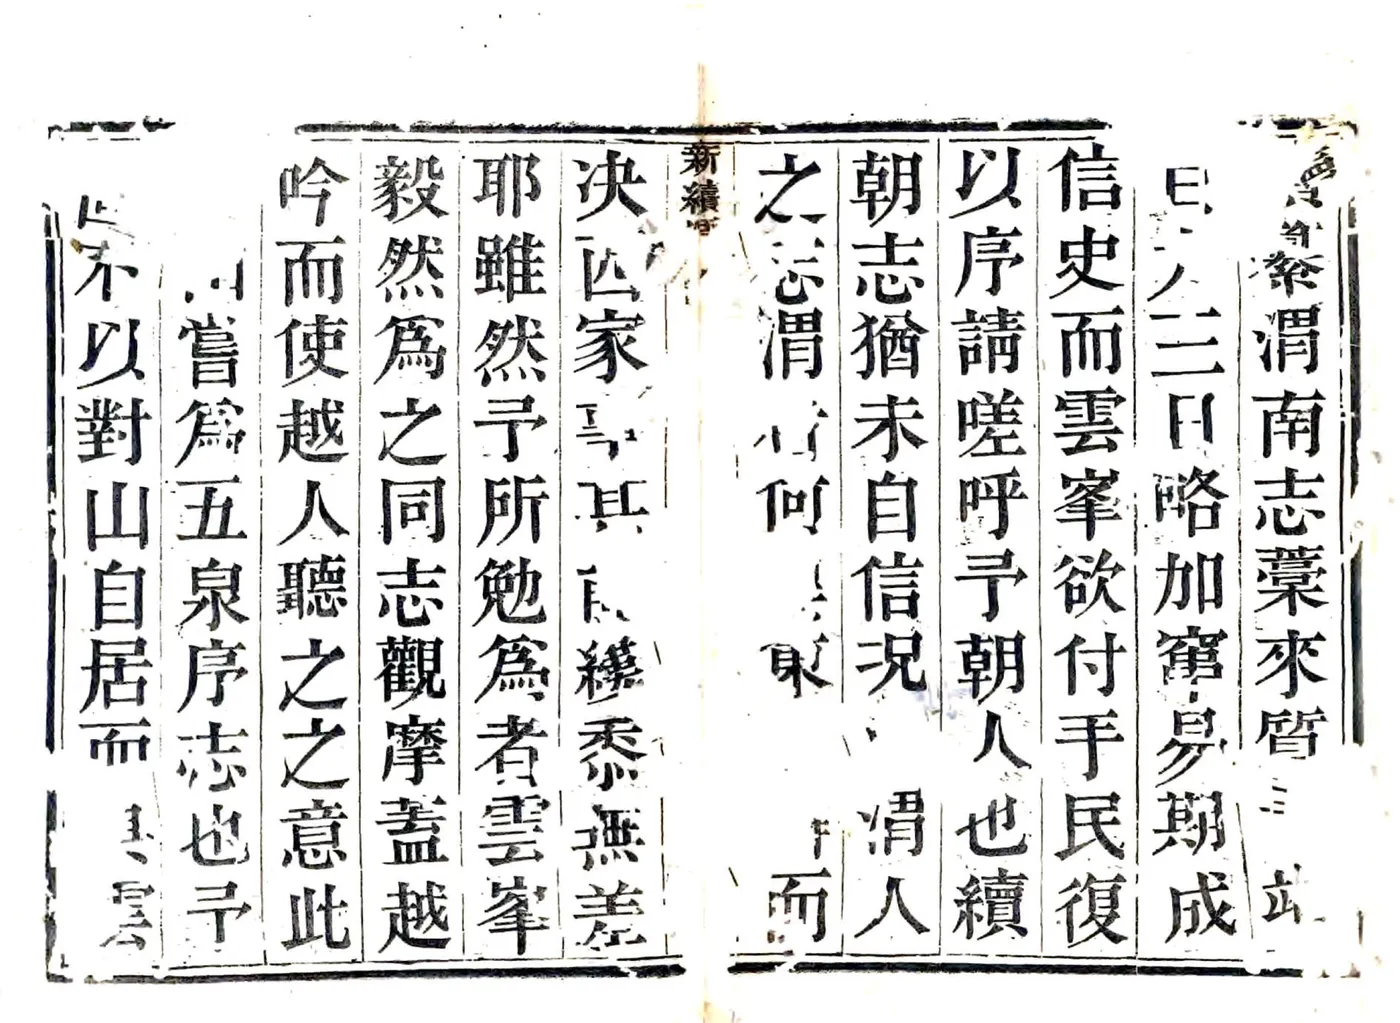 渭南志藁來質
三日略加竄易期成
信史而雲峯欲付手民復
以序請嗟呼予朝人也續
朝志猶未自信況渭人
之志渭何而
新續
決四家其續黍無差
耶雖然予所勉爲者雲峯
毅然爲之同志觀摩蓋越
吟而使越人聽之之意此
嘗爲五泉序志也予
不以對山自居而雲